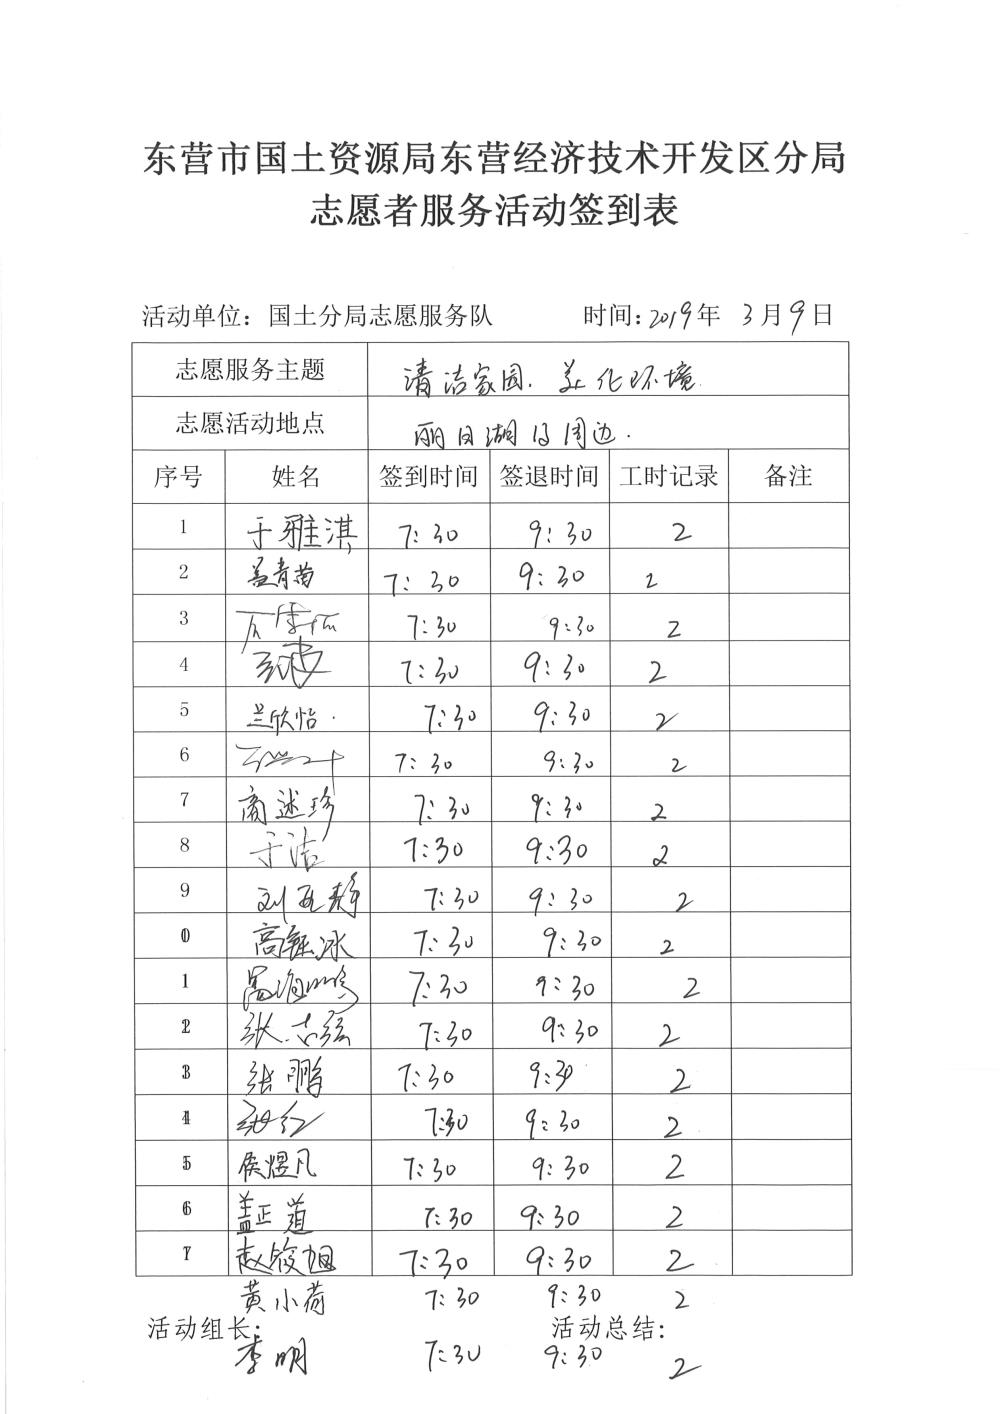 东营市国土资源局东营经济技术开发区分局
志愿者服务活动签到表
活动单位：国土分局志愿服务队 时间：2019年 3月9日
志愿服务主题 清洁家园.美化环境.
志愿活动地点 丽日湖及周边.
序号 姓名 签到时间 签退时间 工时记录 备注
1 于雅淇 7:30 9:30 2
2 孟青苗 7:30 9:30 2
3 7:30 9:30 2
4 7:30 9:30 2
5 兰欣怡. 7:30 9:30 2
6 7:30 9:30 2
7 商述珍 7:30 9:30 2
8 于洁 7:30 9:30 2
9 刘亚静 7:30 9:30 2
10 高钰冰 7:30 9:30 2
11 7:30 9:30 2
12 张志强 7:30 9:30 2
13 张鹏 7:30 9:30 2
14 7:30 9:30 2
15 侯煜凡 7:30 9:30 2
16 盖正道 7:30 9:30 2
17 赵筱旭 7:30 9:30 2
黄小荷 7:30 9:30 2
活动组长： 活动总结：
李明 7:30 9:30 2